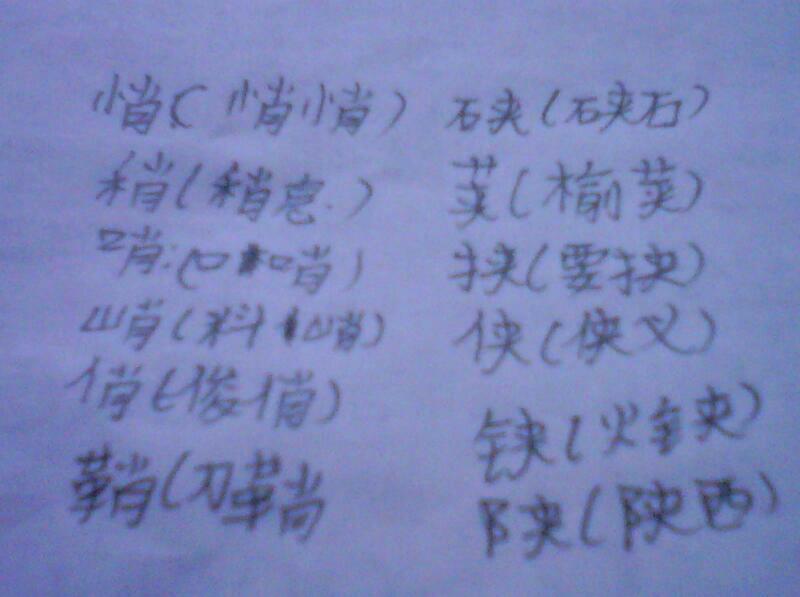 悄(悄悄) 硖(硖石)
稍(稍息.) 荚(榆荚)
哨:(口哨) 挟(要挟)
峭(料峭) 侠(侠义)
俏(俊俏) 铗(火铗)
鞘(刀鞘 陕(陕西)